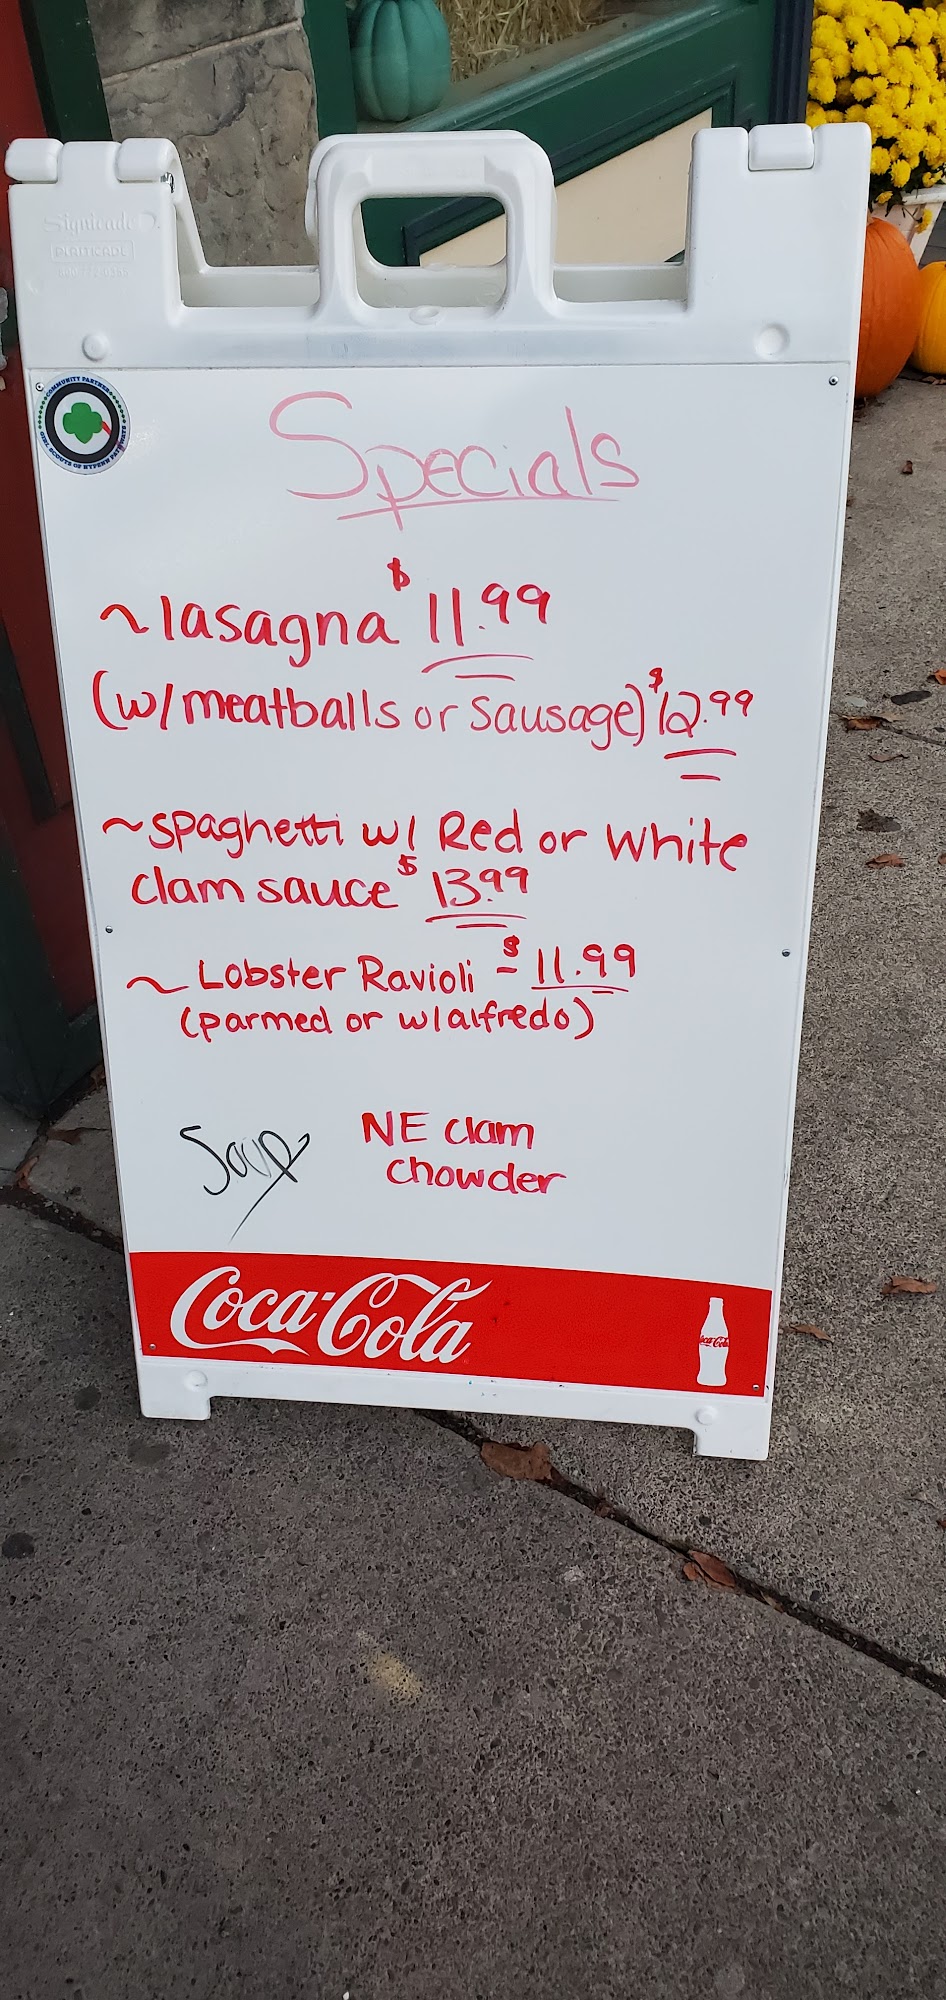 Signicade
PLASTICADE
COMMUNITY PARTNER
GIRL SCOUTS OF NYPENN PATHWAYS
Specials
~lasagna $11.99
(w/meatballs or sausage) $12.99
~spaghetti w/ Red or White
clam sauce $13.99
~ Lobster Ravioli - $11.99
(parmed or w/alfredo)
Soup NE clam
chowder
Coca-Cola
Coca-Cola